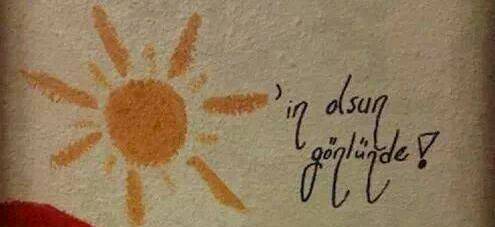 'in olsun
gönlünde!